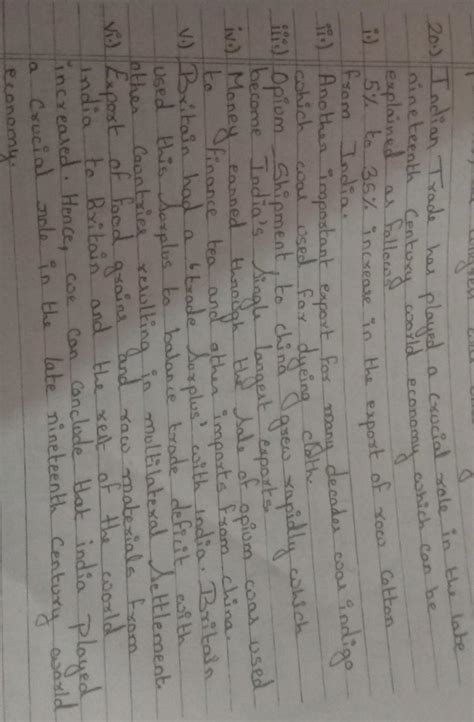 20.) Indian Trade has played a crucial role in the late
nineteenth Century world economy which can be
explained as follows
i.) 5% to 35% increase in the export of raw Cotton
from India.
ii.) Another important export for many decades was indigo
which was used for dyeing cloth.
iii.) Opium Shipment to china grew rapidly which
become India's single largest exports.
iv.) Money earned through the sale of opium was used
to finance tea and other imports from china.
v.) Britain had a "trade Surplus' with india. Britain
used this Surplus to balance trade deficit with
other Countries resulting in multilateral Settlement.
vi.) Export of food grains and raw materials from
india to Britain and the rest of the world
increased. Hence, we can conclude that india played
a crucial role in the late nineteenth Century world
economy.